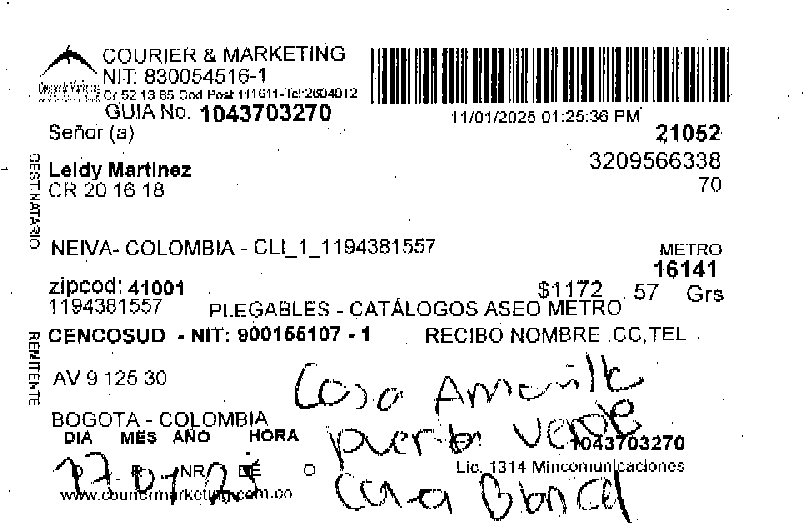 COURIER & MARKETING
NIT: 830054516-1
Cr 52 13 65 Cod Post 111611-Tel:2604012
GUIA No. 1043703270
11/01/2025 01:25:36 PM
Señor (a)
21052
DESTINATARIO
Leidy Martinez
3209566338
CR 20 16 18
70
NEIVA- COLOMBIA - CLI_1_1194381557
METRO
16141
zipcod: 41001
$1172 57 Grs
1194381557
PLEGABLES - CATÁLOGOS ASEO METRO
REMITENTE
CENCOSUD - NIT: 900155107 - 1
RECIBO NOMBRE .CC,TEL
AV 9 125 30
Casa Amarilla
BOGOTA - COLOMBIA
DIA MES AÑO HORA
puerta Verde
1043703270
17 01 25
R NR DE O
Lic. 1314 Mincomunicaciones
www.couriermarketing.com.co
Blanca